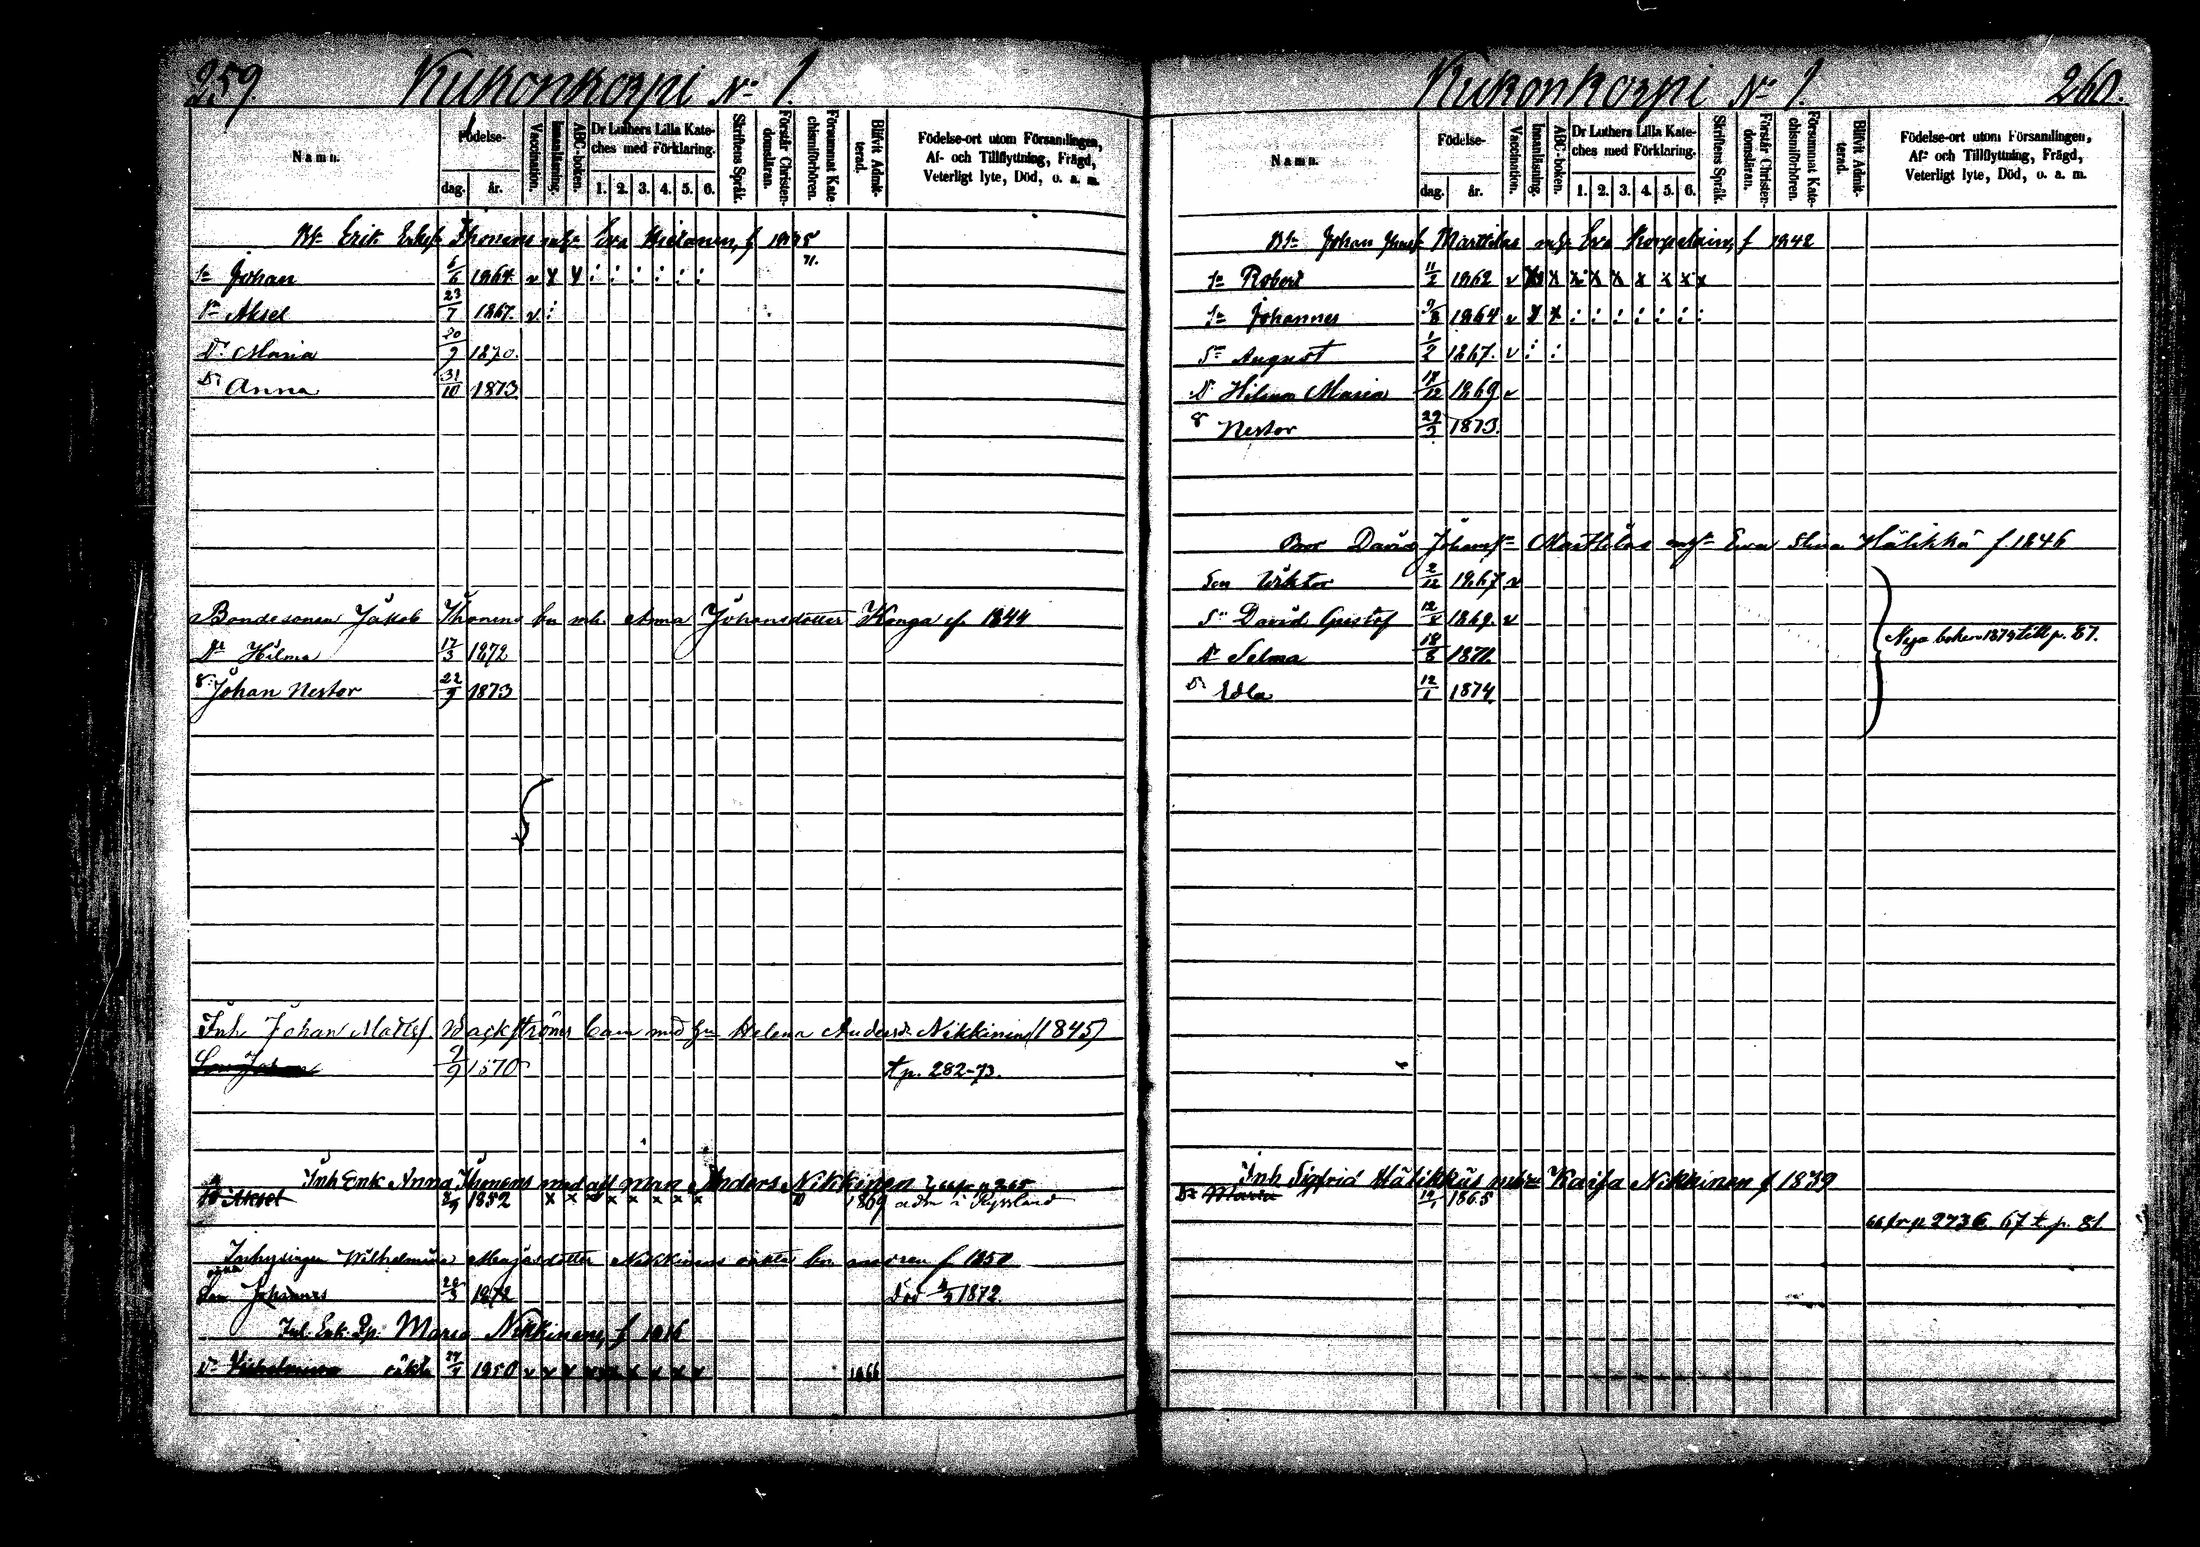 259 Kukonkorpi No 1.
Namn. Födelse- dag. år. Vaccination. Innanläsning. ABC-boken. Dr Luthers Lilla Kate-ches med Förklaring. 1. 2. 3. 4. 5. 6. Skriftens Språk. Förstår Christen-domsläran. Försummat Kate-chismiförhören. Blifvit Admit-terad. Födelse-ort utom Församlingen, Af- och Tillflyttning, Frägd, Veterligt lyte, Död, o. a. m.
Erik Eriksf Thonens Eva f
71.
Sn Johan 6/6 1864 v x x : : : : : :
Sn Aksel 23/7 1867. v :
Dr Maria 20/9 1870.
Dr Anna 31/10 1873
Bondesonen Jakob Thonens bn mh. Anna Johansdotter Konga f. 1844
Dr Hilma 17/3 1872
S Johan Nestor 22/9 1873
Inh Johan Mattsf. Backströms barn med hu Helena Andersd. Nikkinen (1845)
Son Johan 9/9 1870 t p. 282-73.
Inh Enk Anna Thonens med afl man Anders Nikkinen 66 fr p 265
Aksel 2/9 1852 x x x x x x x x 1869 adm i Ryssland
Inhysingen Wilhelmina Nikkinens oäkta bn f 1850
oäkta
Son Johannes 20/3 1872 Död 1872.
Inh. Enk. Pp. Maria Nikkinens f 1816
Dr Wilhelmina oäkta 1850 v v x x x x x x x 1866
Kukonkorpi No 1. 260.
Namn. Födelse- dag. år. Vaccination. Innanläsning. ABC-boken. Dr Luthers Lilla Kate-ches med Förklaring. 1. 2. 3. 4. 5. 6. Skriftens Språk. Förstår Christen-domsläran. Försummat Kate-chismiförhören. Blifvit Admit-terad. Födelse-ort utom Församlingen, Af- och Tillflyttning, Frägd, Veterligt lyte, Död, o. a. m.
Johan Marttilas Eva f 1842
Sn Robert 11/2 1862 v x x x x x x x x x
Sn Johannes 9/8 1864 v x x : : : : : : :
Sn August 1/2 1867. v : :
Dr Hilma Maria 18/12 1869 v
S Nestor 29/3 1873.
Bror David Johansf Marttilas Eva Stina Hälikkä f. 1846
Son Wiktor 2/12 1867 v
Sn David Gustof 12/8 1869. v
Dr Selma 18/8 1871. Nya boken 1879 till p. 87.
Dr Edla 12/1 1874
Inh Sigfrid Hälikkäs Kaisa Nikkinen f 1839
Dr Maria 12/1 1865
66 fr p 273 67 t. p. 81